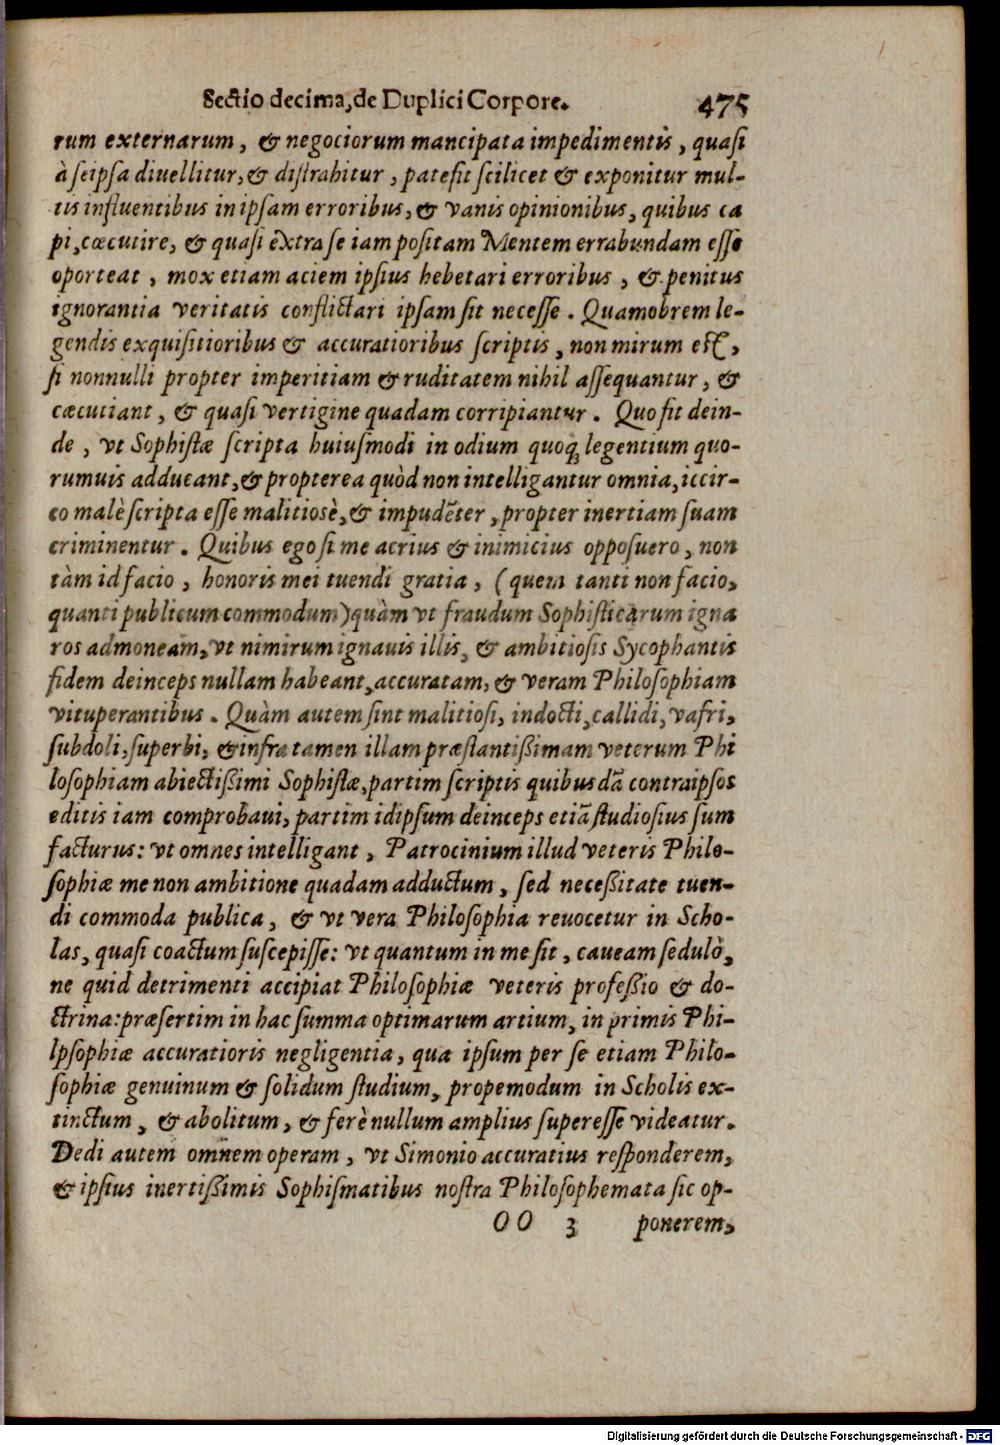 Sectio decima, de Duplici Corpore. 475
rum externarum, & negociorum mancipata impedimentis, quasi
à seipsa diuellitur, & distrahitur, patefit scilicet & exponitur mul-
tis influentibus in ipsam erroribus, & vanis opinionibus, quibus ca
pi, cœcutire, & quasi extra se iam positam Mentem errabundam esse
oporteat, mox etiam aciem ipsius hebetari erroribus, & penitus
ignorantia veritatis conflictari ipsam sit necesse. Quamobrem le-
gendis exquisitioribus & accuratioribus scriptis, non mirum est,
si nonnulli propter imperitiam & ruditatem nihil assequantur, &
cæcutiant, & quasi vertigine quadam corripiantur. Quo fit dein-
de, vt Sophistæ scripta huiusmodi in odium quoqꝫ legentium quo-
rumuis adducant, & propterea quòd non intelligantur omnia, iccir-
co malè scripta esse malitiosè, & impudẽter, propter inertiam suam
criminentur. Quibus ego si me acrius & inimicius opposuero, non
tàm id facio, honoris mei tuendi gratia, (quem tanti non facio,
quanti publicum commodum) quàm vt fraudum Sophisticarum igna
ros admoneam, vt nimirum ignauis illis, & ambitiosis Sycophantis
fidem deinceps nullam habeant, accuratam, & veram Philosophiam
vituperantibus. Quàm autem sint malitiosi, indocti, callidi, vafri,
subdoli, superbi, & infra tamen illam præstantißimam veterum Phi
losophiam abiectißimi Sophistæ, partim scriptis quibusdã contra ipsos
editis iam comprobaui, partim id ipsum deinceps etiã studiosius sum
facturus: vt omnes intelligant, Patrocinium illud veteris Philo-
sophiæ me non ambitione quadam adductum, sed neceßitate tuen-
di commoda publica, & vt vera Philosophia reuocetur in Scho-
las, quasi coactum suscepisse: vt quantum in me sit, caueam sedulò,
ne quid detrimenti accipiat Philosophiæ veteris profeßio & do-
ctrina: præsertim in hac summa optimarum artium, in primis Phi-
lpsophiæ accuratioris negligentia, qua ipsum per se etiam Philo-
sophiæ genuinum & solidum studium, propemodum in Scholis ex-
tinctum, & abolitum, & ferè nullum amplius superesse videatur.
Dedi autem omnem operam, vt Simonio accuratius responderem,
& ipsius inertißimis Sophismatibus nostra Philosophemata sic op-
OO 3 ponerem,
Digitalisierung gefördert durch die Deutsche Forschungsgemeinschaft - DFG